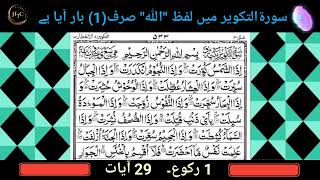 سورۃ التکویر میں لفظ "اللہ" صرف (1) بار آیا ہے
بِسْمِ اللهِ الرَّحْمٰنِ الرَّحِيْمِ
اِذَا الشَّمْسُ كُوِّرَتْ وَاِذَا النُّجُوْمُ انْكَدَرَتْ وَاِذَا الْجِبَالُ
سُيِّرَتْ وَاِذَا الْعِشَارُ عُطِّلَتْ وَاِذَا الْوُحُوْشُ حُشِرَتْ وَاِذَا
الْبِحَارُ سُجِّرَتْ وَاِذَا النُّفُوْسُ زُوِّجَتْ وَاِذَا الْمَوْءٗدَةُ
سُئِلَتْ بِاَيِّ ذَنْبٍ قُتِلَتْ وَاِذَا الصُّحُفُ نُشِرَتْ وَاِذَا
السَّمَآءُ كُشِطَتْ وَاِذَا الْجَحِيْمُ سُعِّرَتْ وَاِذَا الْجَنَّةُ اُزْلِفَتْ
عَلِمَتْ نَفْسٌ مَّآ اَحْضَرَتْ فَلَآ اُقْسِمُ بِالْخُنَّسِ الْجَوَارِ
1 رکوع۔ 29 آیات